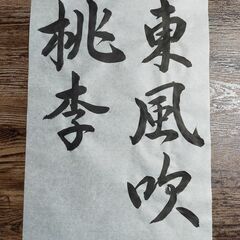 東風吹
桃李